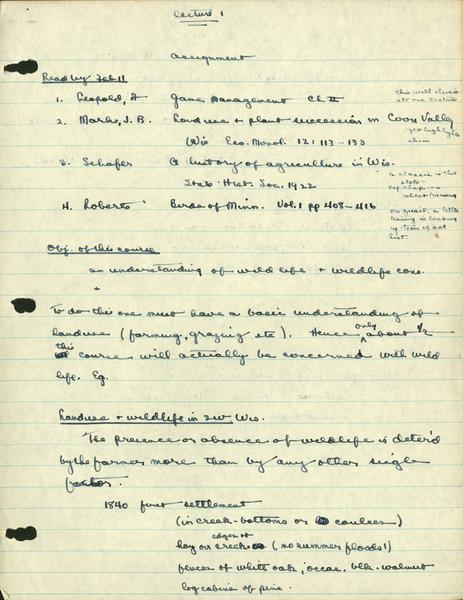 Lecture 1
Assignment
Read by Feb 11
1. Leopold, A Game Management Ch II
This will elimin-
ate one lecture
2. Marks, J. B. Land use + plant succession in Coon Valley
Wis Eco. Monol. 12: 113-133
yes highlights
skim
3. Schafer A history of agriculture in Wis.
State Hist. Soc. 1922
a classic in this
state -
esp. chap. on
wheat farming
4. Roberts Birds of Minn. Vol. 1 pp 408-416
on quail, a little
Obj. of this course
an understanding of wild life + wildlife cons.
+
To do this one must have a basic understanding of
landuse (farming, grazing etc). Hence only about 1/2
this course will actually be concerned with wild
life. Eg.
Landuse + wildlife in sw Wis.
The presence or absence of wildlife is deter'd
by the farmer more than by any other single
factor.
1840 first settlement
(in creek-bottoms or coulees)
hay on edges of creeks (no summer floods!)
fences of white oak, occas. blk. walnut
log cabins of pine.